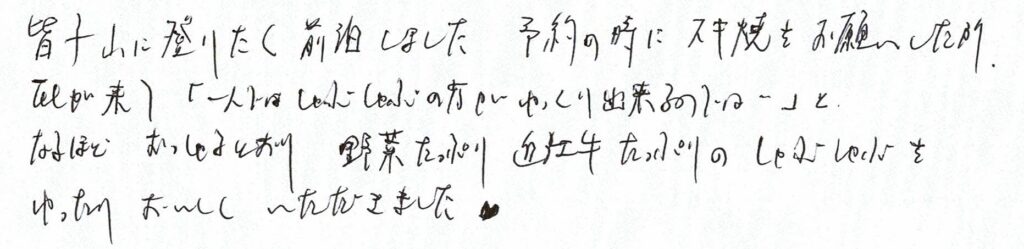 皆子山に登りたく 前泊しました 予約の時に スキ焼を お願いした所、
Telが来て 「一人には しゃぶしゃぶの方が ゆっくり出来るのでは-」と
なるほど おっしゃるとおり 野菜たっぷり 近江牛たっぷりの しゃぶしゃぶを
ゆったり おいしく いただきました